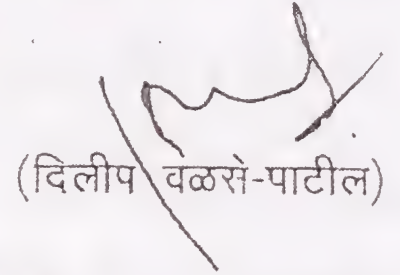 (दिलीप वळसे-पाटील)